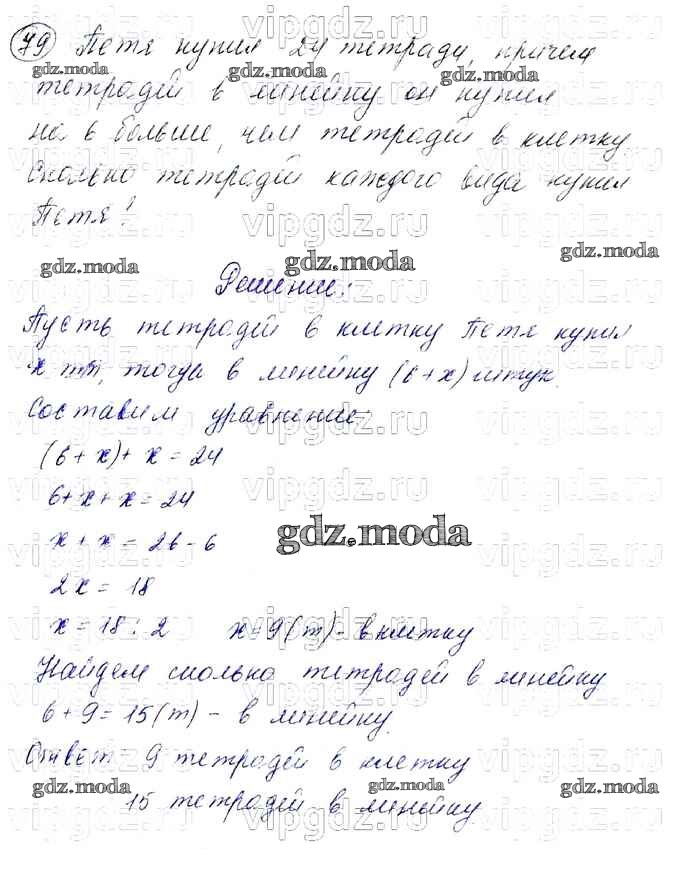 79 Петя купил 24 тетради, причем
тетрадей в линейку он купил
на 6 больше, чем тетрадей в клетку
Сколько тетрадей каждого вида купил
Петя?
Решение:
Пусть тетрадей в клетку Петя купил
x шт, тогда в линейку (6+x) штук.
Составим уравнение:
(6+x)+x=24
6+x+x=24
x+x=26-6
2x=18
x=18:2 x=9(т)-в клетку
Найдем сколько тетрадей в линейку
6+9=15(т)-в линейку.
Ответ: 9 тетрадей в клетку
15 тетрадей в линейку
gdz.moda
vipgdz.ru